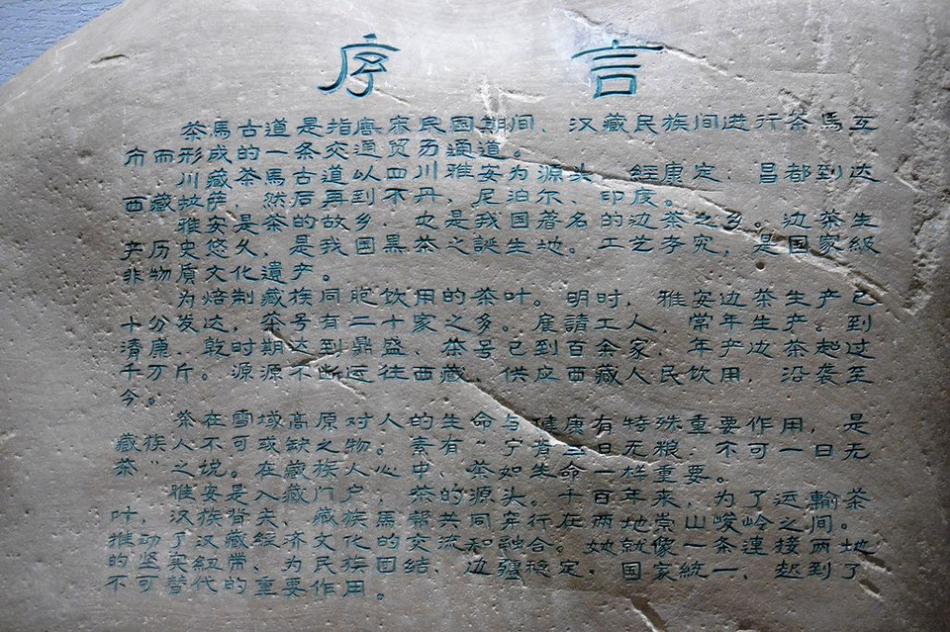 序言
茶馬古道是指唐宋民国期间、汉藏民族间进行茶馬互
市而形成的一条交通贸历通道。
川藏茶馬古道以四川雅安为源头，经康定，昌都到达
西藏拉萨，然后再到不丹，尼泊尔、印度。
雅安是茶的故乡，也是我国著名的边茶之乡。边茶生
产历史悠久，是我国黑茶之誕生地。工艺考究，是国家級
非物质文化遺产。
为焙制藏族同胞饮用的茶叶。明时，雅安边茶生产已
十分发达，茶号有二十家之多。雇請工人，常年生产。到
清康、乾时期达到鼎盛、茶号已到百余家、年产边茶超过
千万斤。源源不断运往西藏，供应西藏人民饮用，沿袭至
今。
茶在雪域高原对人的生命与健康有特殊重要作用，是
藏族人不可或缺之物。素有“宁肯三日无粮，不可一日无
茶”之说。在藏族人心中、茶如生命一样重要。
雅安是入藏门户，茶的源头。千百年来，为了运輸茶
叶，汉族背夫、藏族馬帮共同穿行在两地崇山峻岭之间。
推动了汉藏經济文化的交流和融合。她就像一条連接两地
的坚实紅带、为民族团结、边疆稳定，国家統一，起到了
不可替代的重要作用。